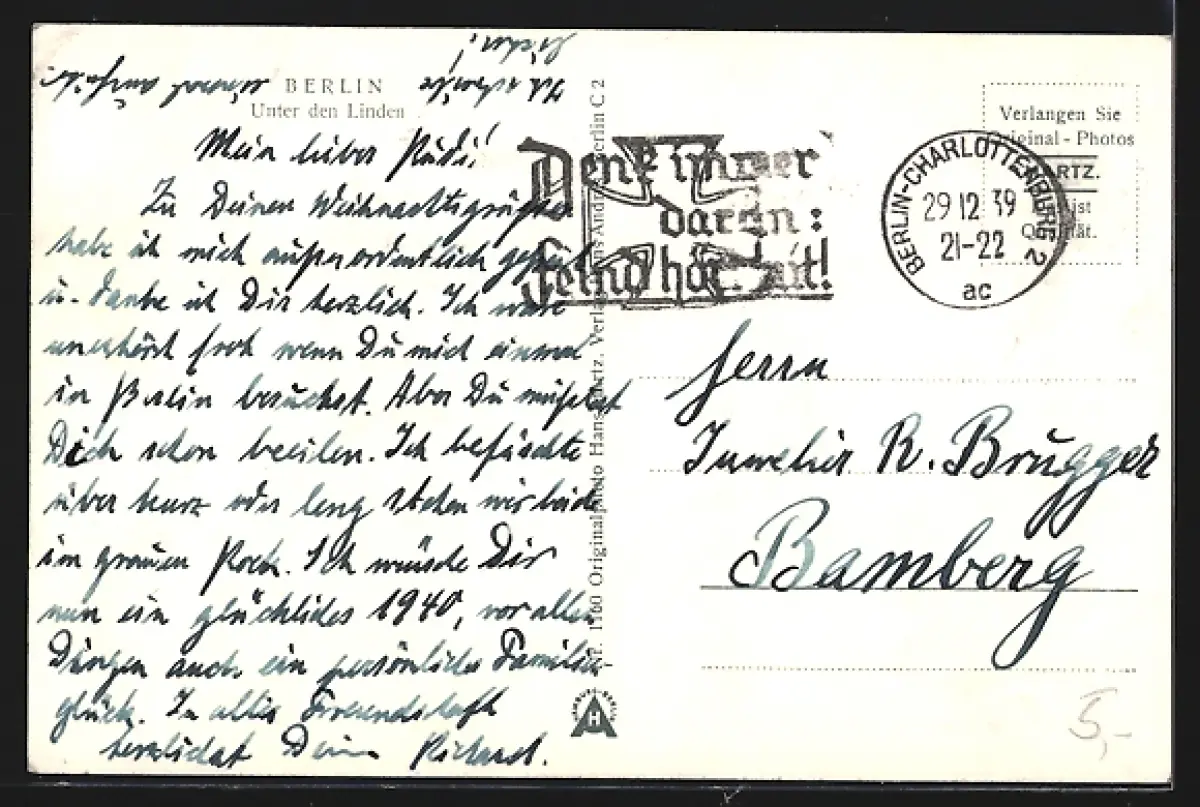 BERLIN
Unter den Linden
Mein lieber Rudi!
Zu Deinen Weihnachtsgrüßen
habe ich mich außerordentlich gefreut
u. danke ich Dir herzlich. Ich wäre
unerhört froh wenn Du mich einmal
in Berlin besuchst. Aber Du müßtest
Dich schon beeilen. Ich befürchte
über kurz oder lang stehen wir beide
im grauen Rock. Ich wünsche Dir
nun ein glückliches 1940, vor allen
Dingen auch ein persönliches Familien-
glück. In alter Freundschaft
herzlichst Dein Richard.
1160 Originalphoto Hans Hartz, Berlin C 2
Denk immer
daran:
Feind hört mit!
BERLIN-CHARLOTTENBURG 2
29 12 39
21-22
ac
Verlangen Sie
Original-Photos
HARTZ.
ist
Qualität.
Herrn
Juwelier R. Brugger
Bamberg
H
5,-